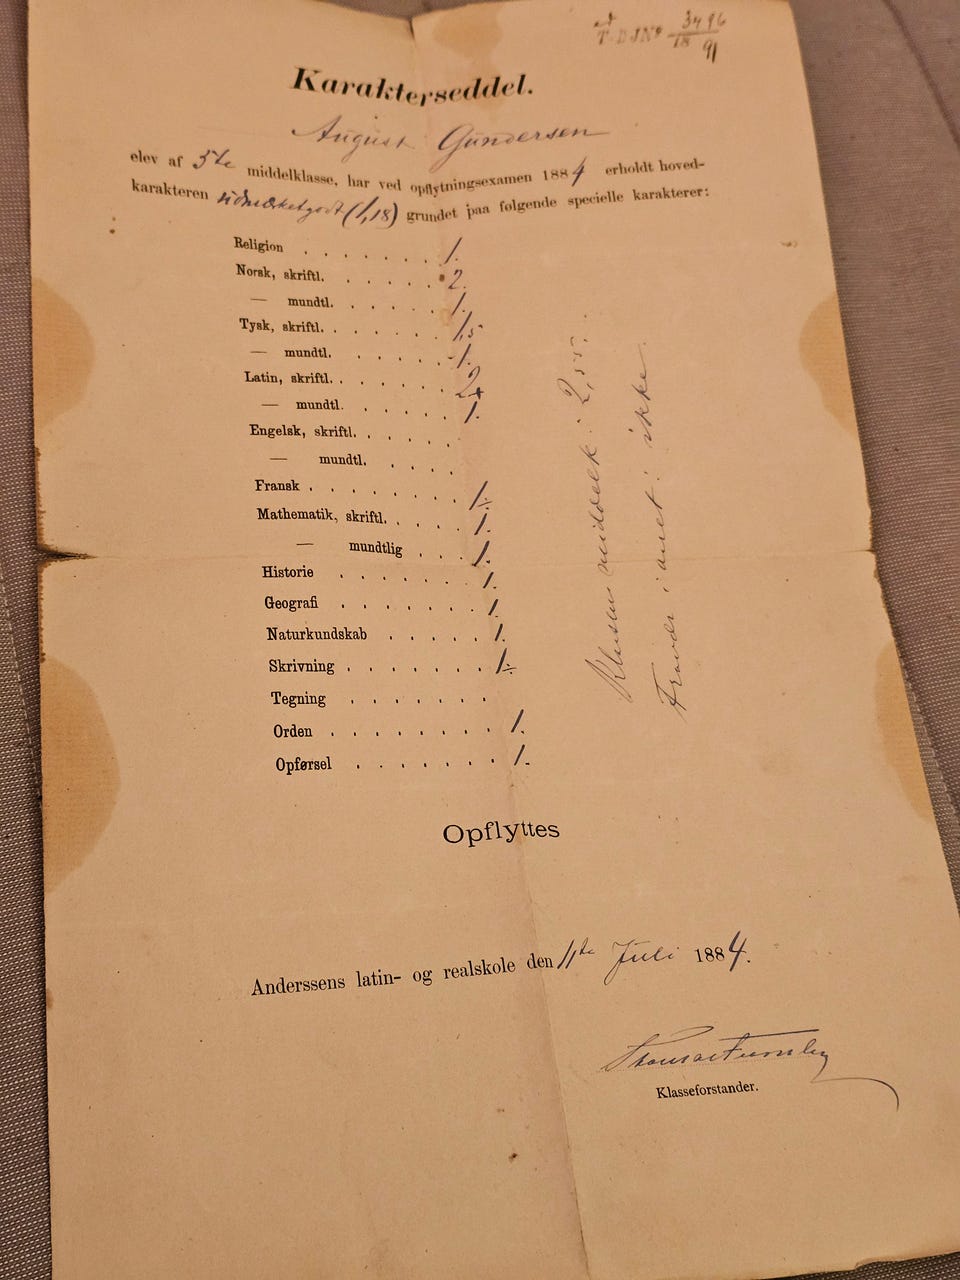 T. D J No 3496
18 91
Karakterseddel.
August Gundersen
elev af 5te middelklasse, har ved opflytningsexamen 1884 erholdt hoved-
karakteren udmærketgodt (1,18) grundet paa følgende specielle karakterer:
Religion . . . . . . . 1.
Norsk, skriftl. . . . . . 2.
— mundtl. . . . . . 1.
Tysk, skriftl. . . . . . 1,5.
— mundtl. . . . . -1.
Latin, skriftl. . . . . . 2+
— mundtl. . . . . . 1.
Engelsk, skriftl. . . . . .
— mundtl. . . . .
Fransk . . . . . . . 1÷
Mathematik, skriftl. . . . . 1.
— mundtlig . . . 1.
Historie . . . . . . 1.
Geografi . . . . . . 1.
Naturkundskab . . . . . 1.
Skrivning . . . . . . . 1÷
Tegning . . . . . . .
Orden . . . . . . . . 1.
Opførsel . . . . . . . 1.
Klassens middelk: 2,55.
i aaret: ikke.
Opflyttes
Anderssens latin- og realskole den 11te Juli 1884.
Klasseforstander.